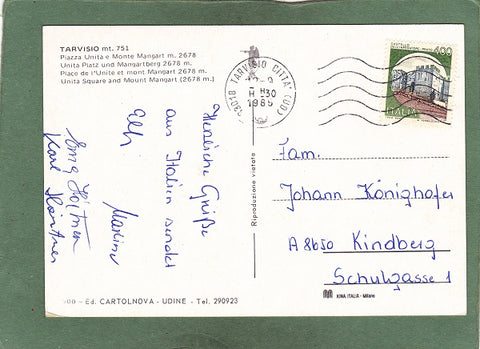 TARVISIO mt. 751
Piazza Unità e Monte Mangart m. 2678
Unita Platz und Mangartberg 2678 m.
Place de l'Unité et mont Mangart 2678 m.
Unita Square and Mount Mangart (2678 m.)
33018 TARVISIO CITTA' (UD)
H 30
1985
400
ITALIA
Herzliche Grüße
aus Italien sendet
Elh
Karl
Riproduzione vietata
Fam.
Johann Könighofer
A 8650 Kindberg
Schulgasse 1
Ed. CARTOLNOVA - UDINE - Tel. 290923
KINA ITALIA - Milano